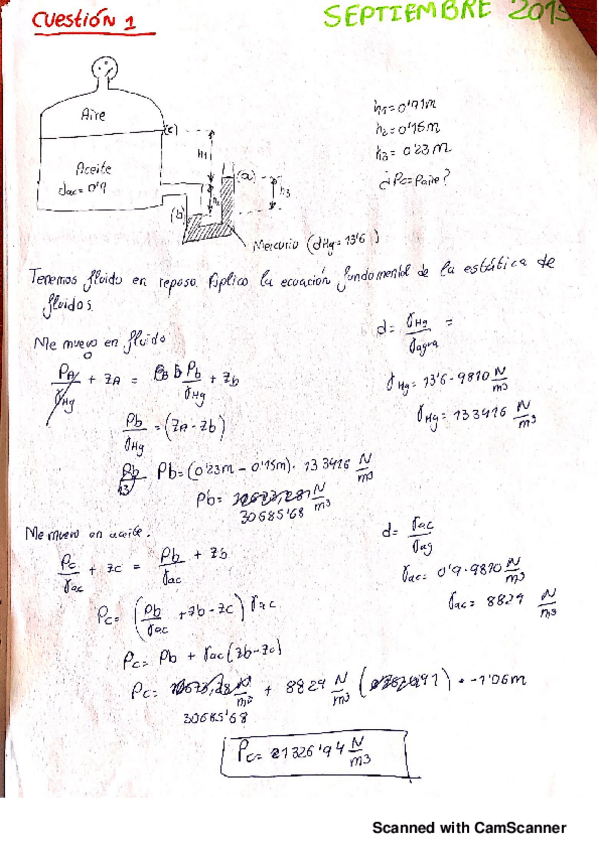 CUESTIÓN 1
SEPTIEMBRE 2015
Aire
(c)
Aceite
dac = 0'9
H1
(a)
h3
(b)
Mercurio (dHg = 13'6)
h1 = 0'91m
h2 = 0'15m
h3 = 0'23m
¿Pc = Paire?
Tenemos fluido en reposo. Aplico la ecuación fundamental de la estática de
fluidos.
Me muevo en fluido
PA/γHg + ZA = Pb/γHg + Zb
Pb/γHg = (ZA - Zb)
Pb = (0'23m - 0'15m) · 133416 N/m3
Pb = 30685'68 N/m3
d = γHg/γagua =
γHg = 13'6 · 9810 N/m3
γHg = 133416 N/m3
Me muevo en aceite.
Pc/γac + Zc = Pb/γac + Zb
Pc = (Pb/γac + Zb - Zc) γac
Pc = Pb + γac (Zb - Zc)
Pc = 30685'68 + 8829 N/m3 · -1'06m
d = γac/γag
γac = 0'9 · 9810 N/m3
γac = 8829 N/m3
Pc = 21326'94 N/m3
Scanned with CamScanner